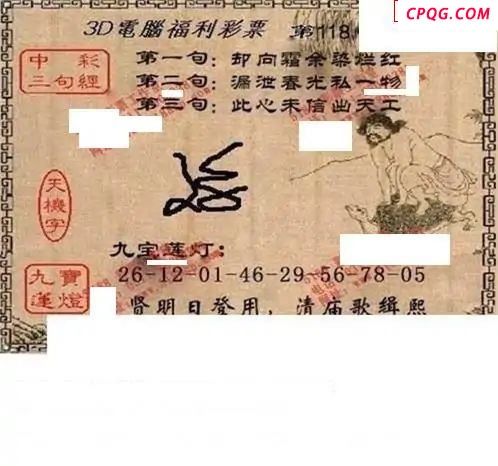 CPQG.COM
3D電腦福利彩票 第118
中彩
三句經
第一句：却向霜余染烂红
第二句：漏泄春光私一物
第三句：此心未信出天工
天機字
九宝莲灯：
九寶
蓮燈
26-12-01-46-29-56-78-05
贤明日登用，清庙歌缉熙